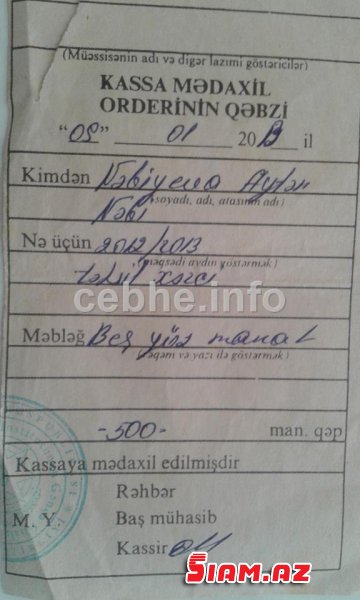 (Müəssisənin adı və digər lazımi göstəricilər)
KASSA MƏDAXİL
ORDERİNİN QƏBZİ
"05" 01 2013 il
Kimdən Nəbiyeva Aytən
(soyadı, adı, atasının adı)
Nəbi
Nə üçün 2012/2013
(məqsədi aydın göstərmək)
təhsil xərci
cebhe.info
Məbləğ Beş yüz manat
(rəqəm və yazı ilə göstərmək)
-500- man. qəp
Kassaya mədaxil edilmişdir
Rəhbər
M. Y. Baş mühasib
Kassir
SIAM.AZ